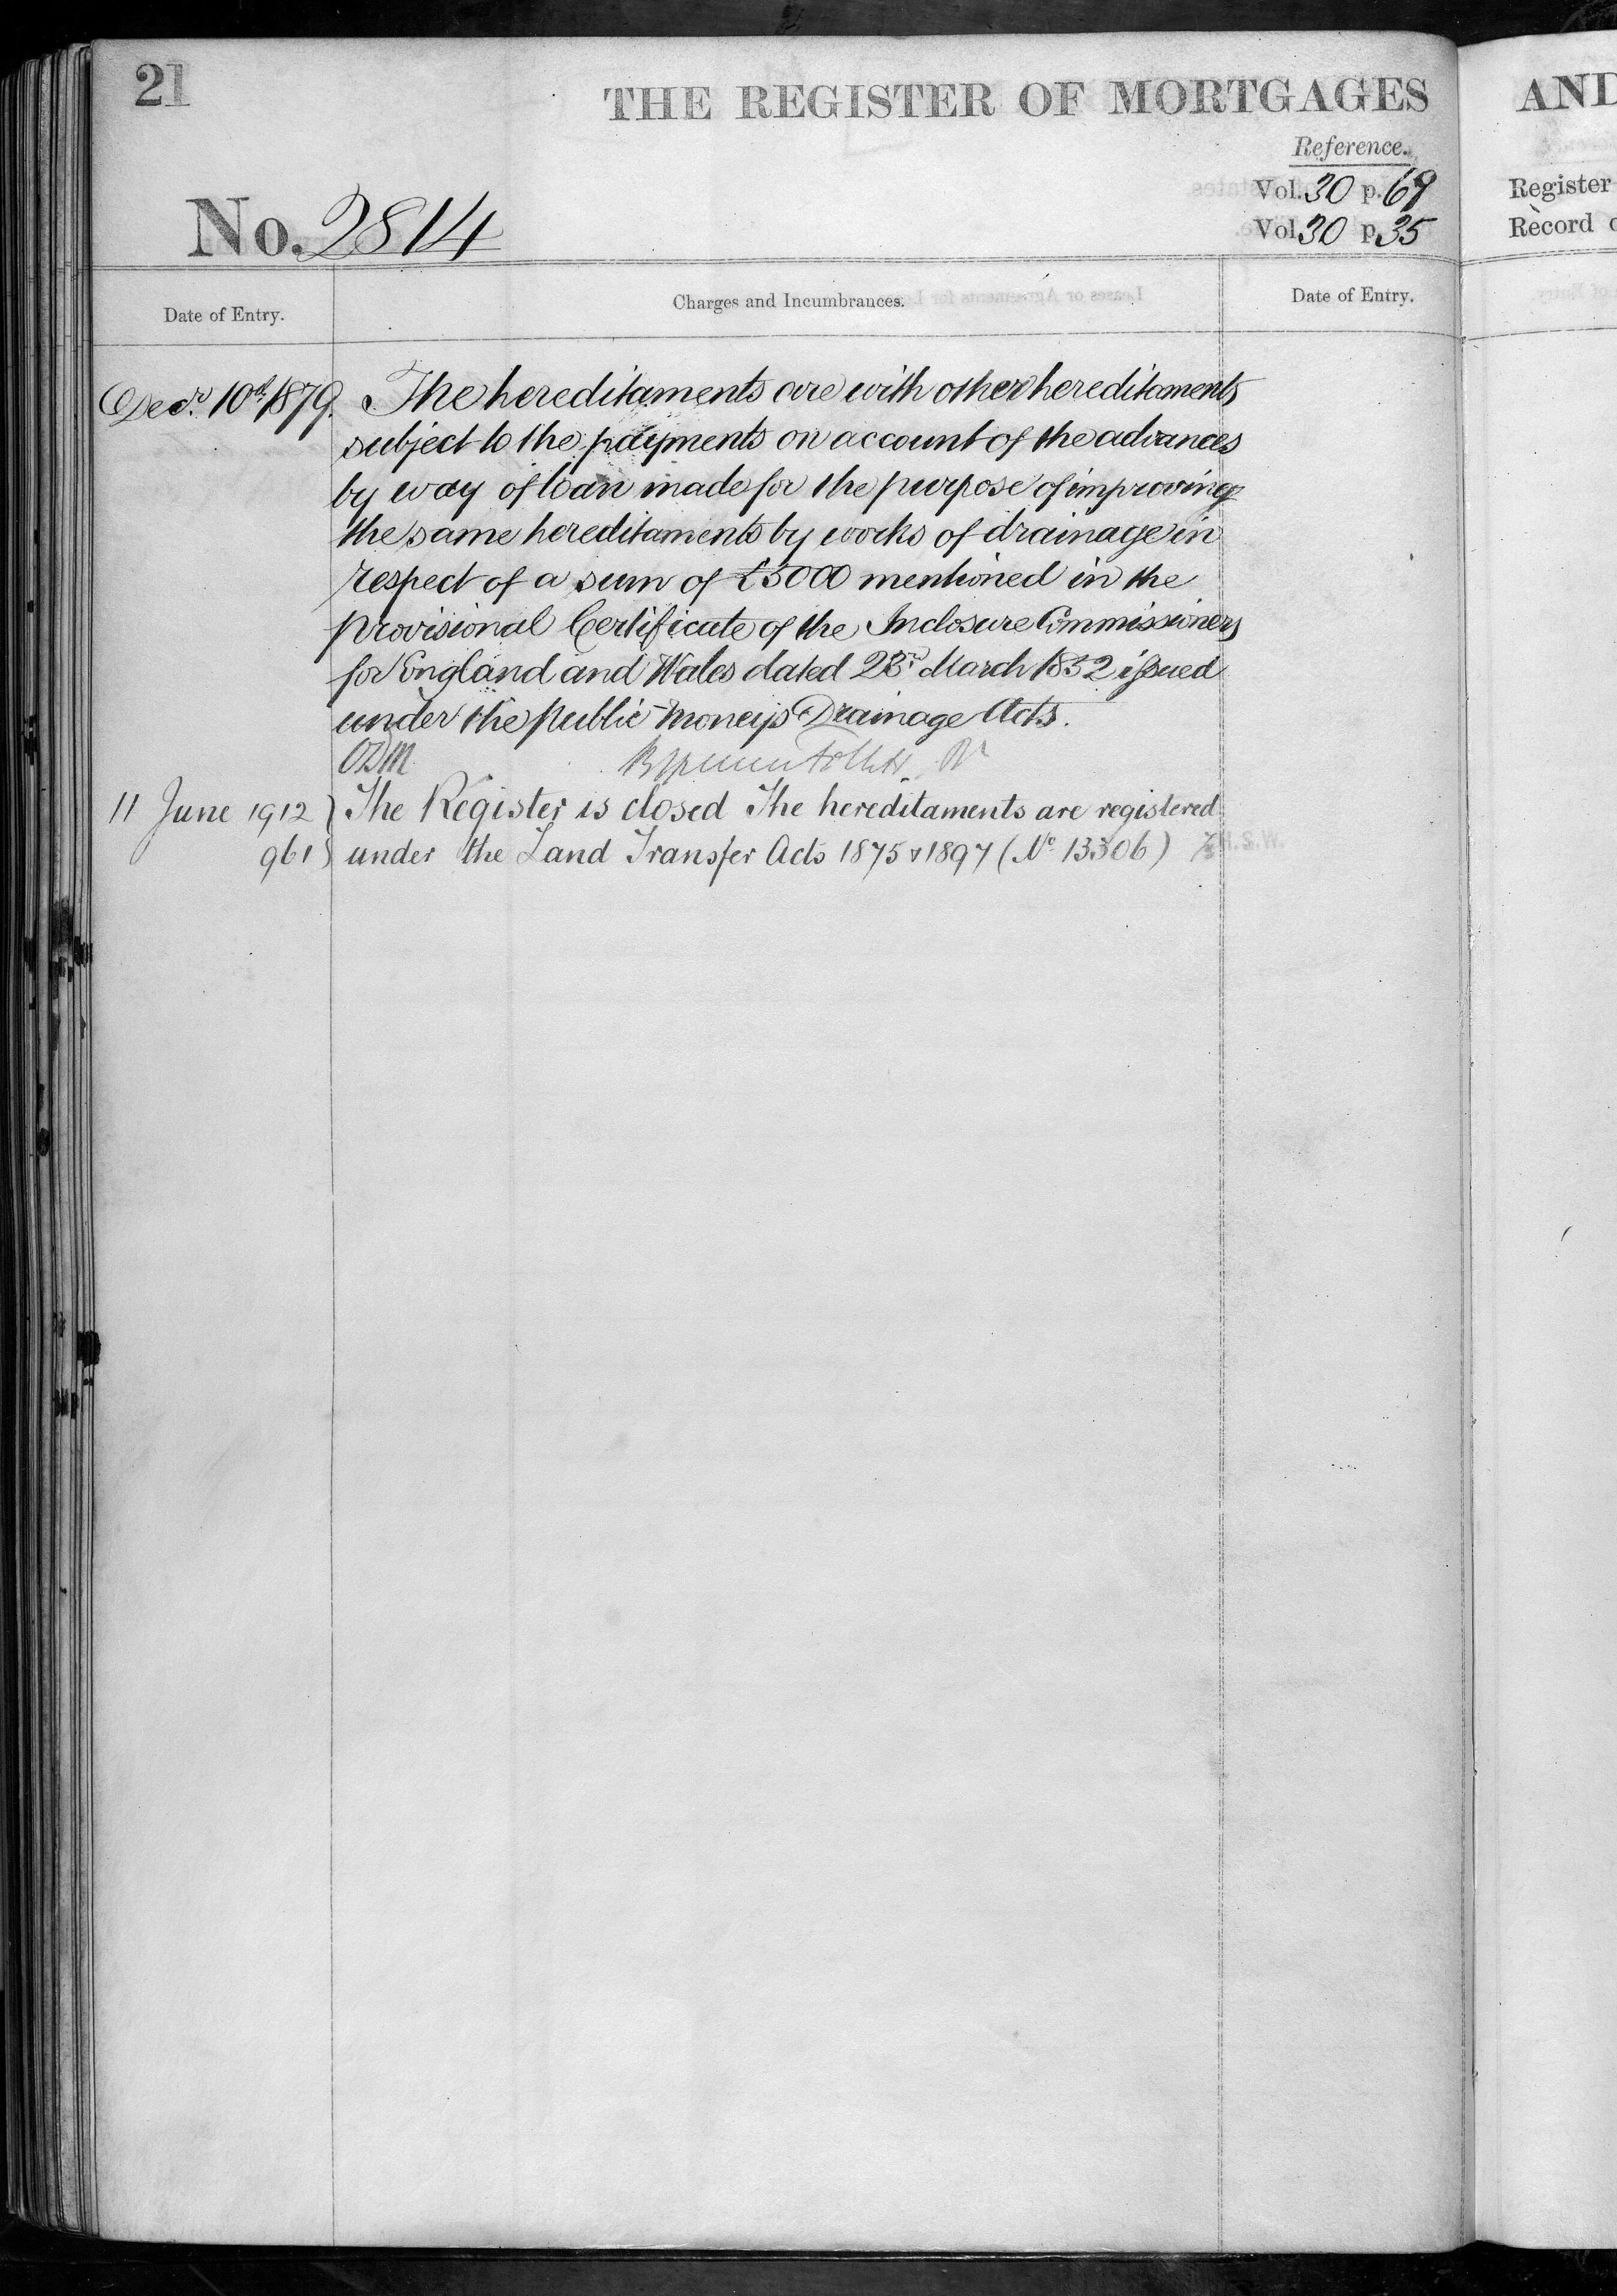 21
THE REGISTER OF MORTGAGES
Reference.
Vol. 30 p. 69
No. 2814
Vol 30 p. 35
Date of Entry.
Charges and Incumbrances.
Date of Entry.
Decr. 10th 1879. The hereditaments are with other hereditaments
subject to the payments on account of the advances
by way of loan made for the purpose of improving
the same hereditaments by works of drainage in
respect of a sum of £5000 mentioned in the
provisional Certificate of the Inclosure Commissioners
for England and Wales dated 23rd March 1852 issued
under the public moneys Drainage Acts.
11 June 1912 } The Register is closed The hereditaments are registered
961 } under the Land Transfer Acts 1875 & 1897 (No 13306) H.S.W.
AND
Register
Record